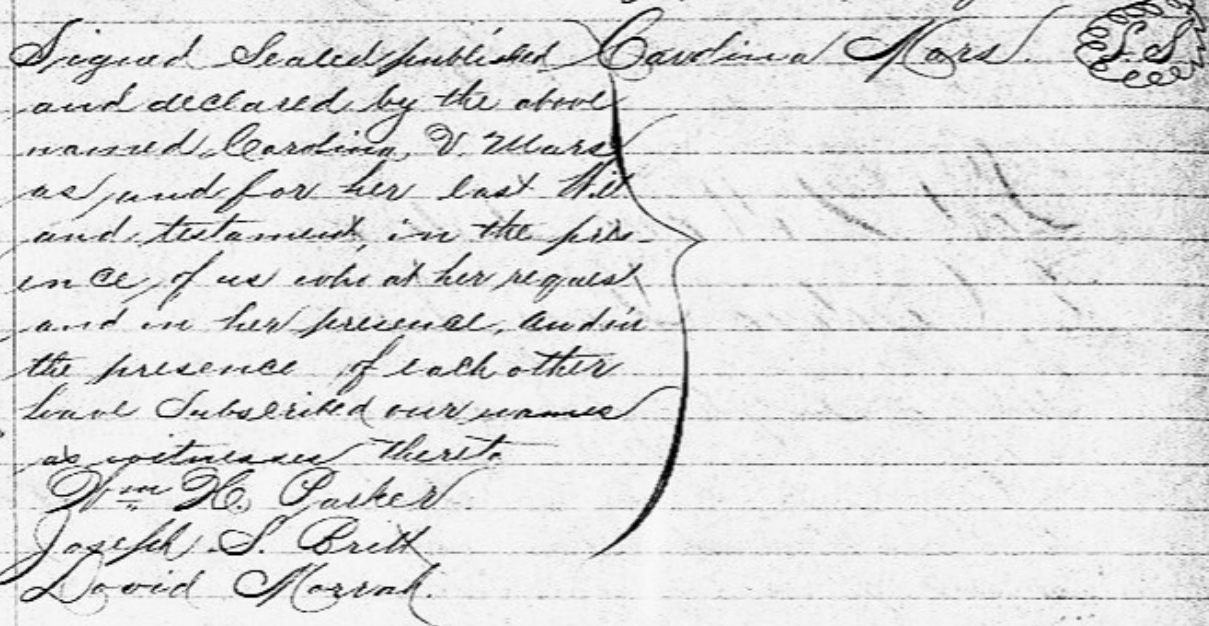 Signed Sealed published Carolina Mars. L.S.
and declared by the above
named, Carolina, V. Mars
as, and for her last Will
and testament, in the pres-
ence, of us who at her request
and in her presence, and in
the presence of each other
have Subscribed our names
as witnesses thereto
Wm H. Parker
Joseph S. Britt
David Morrah.